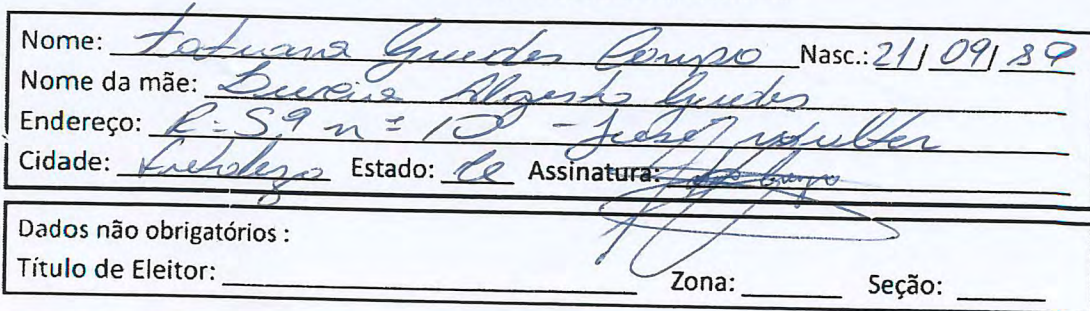 Nome: Tatuana Guedes Campo Nasc.: 21/09/89
Nome da mãe: Guedes
Endereço: R=59 nº 10 - José Walter
Cidade: Fortaleza Estado: Ce Assinatura:
Dados não obrigatórios :
Título de Eleitor: Zona: Seção: